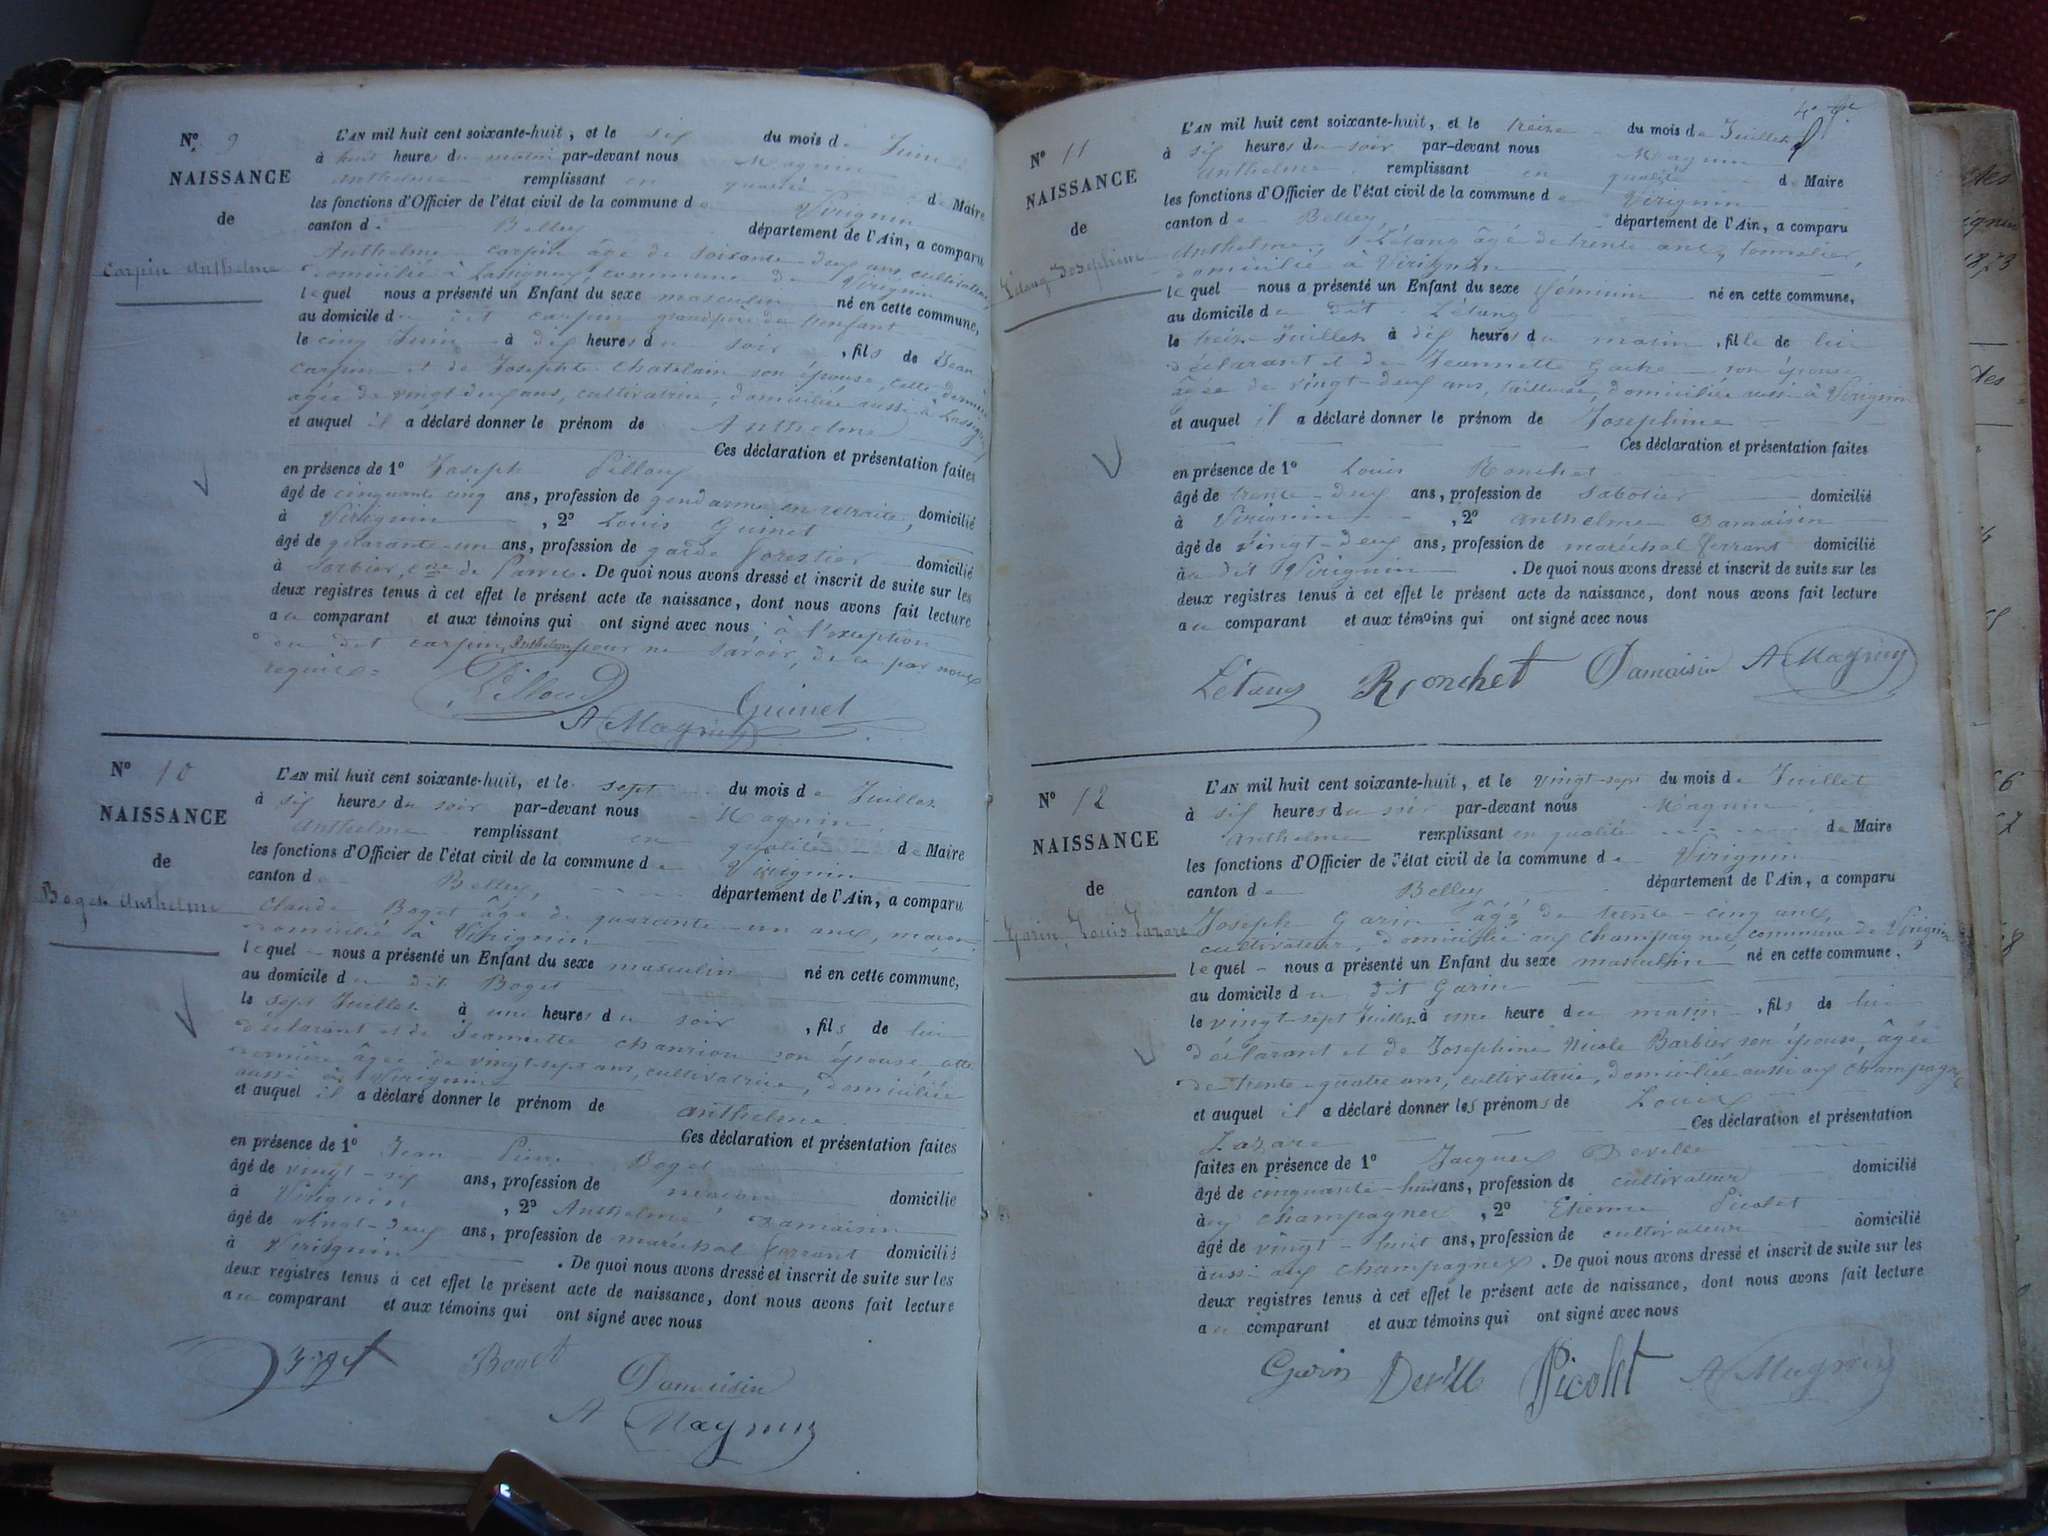 Nº 9
NAISSANCE
de
Carpin Anthelme
L'AN mil huit cent soixante-huit, et le six du mois de Juin
à huit heures du matin par-devant nous Magnin
Anthelme remplissant en qualité de Maire
les fonctions d'Officier de l'état civil de la commune de Virignin
canton de Belley département de l'Ain, a comparu
Anthelme Carpin âgé de soixante-deux ans, cultivateur,
domicilié à Lassignieu commune de Virignin
lequel nous a présenté un Enfant du sexe masculin né en cette commune,
au domicile du dit Carpin grand père de l'enfant
le cinq Juin à dix heures du soir, fils de Jean
Carpin et de Josephte Chatelain son épouse, cette dernière
âgée de vingt deux ans, cultivatrice, domiciliée aussi à
et auquel il a déclaré donner le prénom de Anthelme
Ces déclaration et présentation faites
en présence de 1º Joseph Pilloux
âgé de cinquante cinq ans, profession de gendarme en retraite, domicilié
à Virignin, 2º Louis Guinet
âgé de quarante-un ans, profession de garde forestier domicilié
à Sorbier, cne de Parves. De quoi nous avons dressé et inscrit de suite sur les
deux registres tenus à cet effet le présent acte de naissance, dont nous avons fait lecture
au comparant et aux témoins qui ont signé avec nous, à l'exception
du dit Carpin Anthelme pour ne savoir, de ce par nous
requis.
Guinet
A Magnin
Nº 10
NAISSANCE
de
Boget Anthelme
L'AN mil huit cent soixante-huit, et le sept du mois de Juillet
à six heures du soir par-devant nous Magnin,
Anthelme remplissant en qualité de Maire
les fonctions d'Officier de l'état civil de la commune de Virignin
canton de Belley, département de l'Ain, a comparu
Claude Boget âgé de quarante-un ans, maçon
domicilié à Virignin
lequel nous a présenté un Enfant du sexe masculin né en cette commune,
au domicile du dit Boget
le sept Juillet à une heures du soir, fils de lui
déclarant et de Jeannette Chanrion son épouse, cette
dernière âgée de vingt-sept ans, cultivatrice, domiciliée
aussi à Virignin
et auquel il a déclaré donner le prénom de Anthelme
Ces déclaration et présentation faites
en présence de 1º Jean Pierre Boget
âgé de vingt-six ans, profession de maçon domicilié
à Virignin, 2º Anthelme Damaisin
âgé de vingt-deux ans, profession de maréchal ferrant domicilié
à Virignin. De quoi nous avons dressé et inscrit de suite sur les
deux registres tenus à cet effet le présent acte de naissance, dont nous avons fait lecture
au comparant et aux témoins qui ont signé avec nous
Boget Boget Damaisin
A Magnin
Nº 11
NAISSANCE
de
Létang Josephine
L'AN mil huit cent soixante-huit, et le treize du mois de Juillet
à six heures du soir par-devant nous Magnin
Anthelme remplissant en qualité de Maire
les fonctions d'Officier de l'état civil de la commune de Virignin
canton de Belley département de l'Ain, a comparu
Anthelme Létang âgé de trente ans, tonnelier,
domicilié à Virignin
lequel nous a présenté un Enfant du sexe féminin né en cette commune,
au domicile du dit Létang
le treize Juillet à dix heures du matin, fille de lui
déclarant et de Jeannette son épouse
âgée de vingt-deux ans, tailleuse, domiciliée aussi à Virignin
et auquel il a déclaré donner le prénom de Josephine
Ces déclaration et présentation faites
en présence de 1º Louis Ronchet
âgé de trente-deux ans, profession de sabotier domicilié
à Virignin, 2º Anthelme Damaisin
âgé de vingt-deux ans, profession de maréchal ferrant domicilié
au dit Virignin. De quoi nous avons dressé et inscrit de suite sur les
deux registres tenus à cet effet le présent acte de naissance, dont nous avons fait lecture
au comparant et aux témoins qui ont signé avec nous
Létang Ronchet Damaisin A Magnin
Nº 12
NAISSANCE
de
Garin, Louis Lazare
L'AN mil huit cent soixante-huit, et le vingt-sept du mois de Juillet
à six heures du soir par-devant nous Magnin,
Anthelme remplissant en qualité de Maire
les fonctions d'Officier de l'état civil de la commune de Virignin
canton de Belley département de l'Ain, a comparu
Joseph Garin âgé de trente-cinq ans,
cultivateur, domicilié aux Champagnes commune de Virignin
lequel nous a présenté un Enfant du sexe masculin né en cette commune,
au domicile du dit Garin
le vingt-sept Juillet à une heure du matin, fils de lui
déclarant et de Josephine Nicole Barbier son épouse, âgée
de trente-quatre ans, cultivatrice, domiciliée aussi aux Champagnes
et auquel il a déclaré donner les prénoms de Louis
Ces déclaration et présentation
Lazare
faites en présence de 1º Jacques Deville
âgé de cinquante-huit ans, profession de cultivateur domicilié
aux Champagnes, 2º Etienne Picolet
âgé de vingt-huit ans, profession de cultivateur domicilié
aussi aux Champagnes. De quoi nous avons dressé et inscrit de suite sur les
deux registres tenus à cet effet le présent acte de naissance, dont nous avons fait lecture
au comparant et aux témoins qui ont signé avec nous
Garin Deville Picolet A Magnin